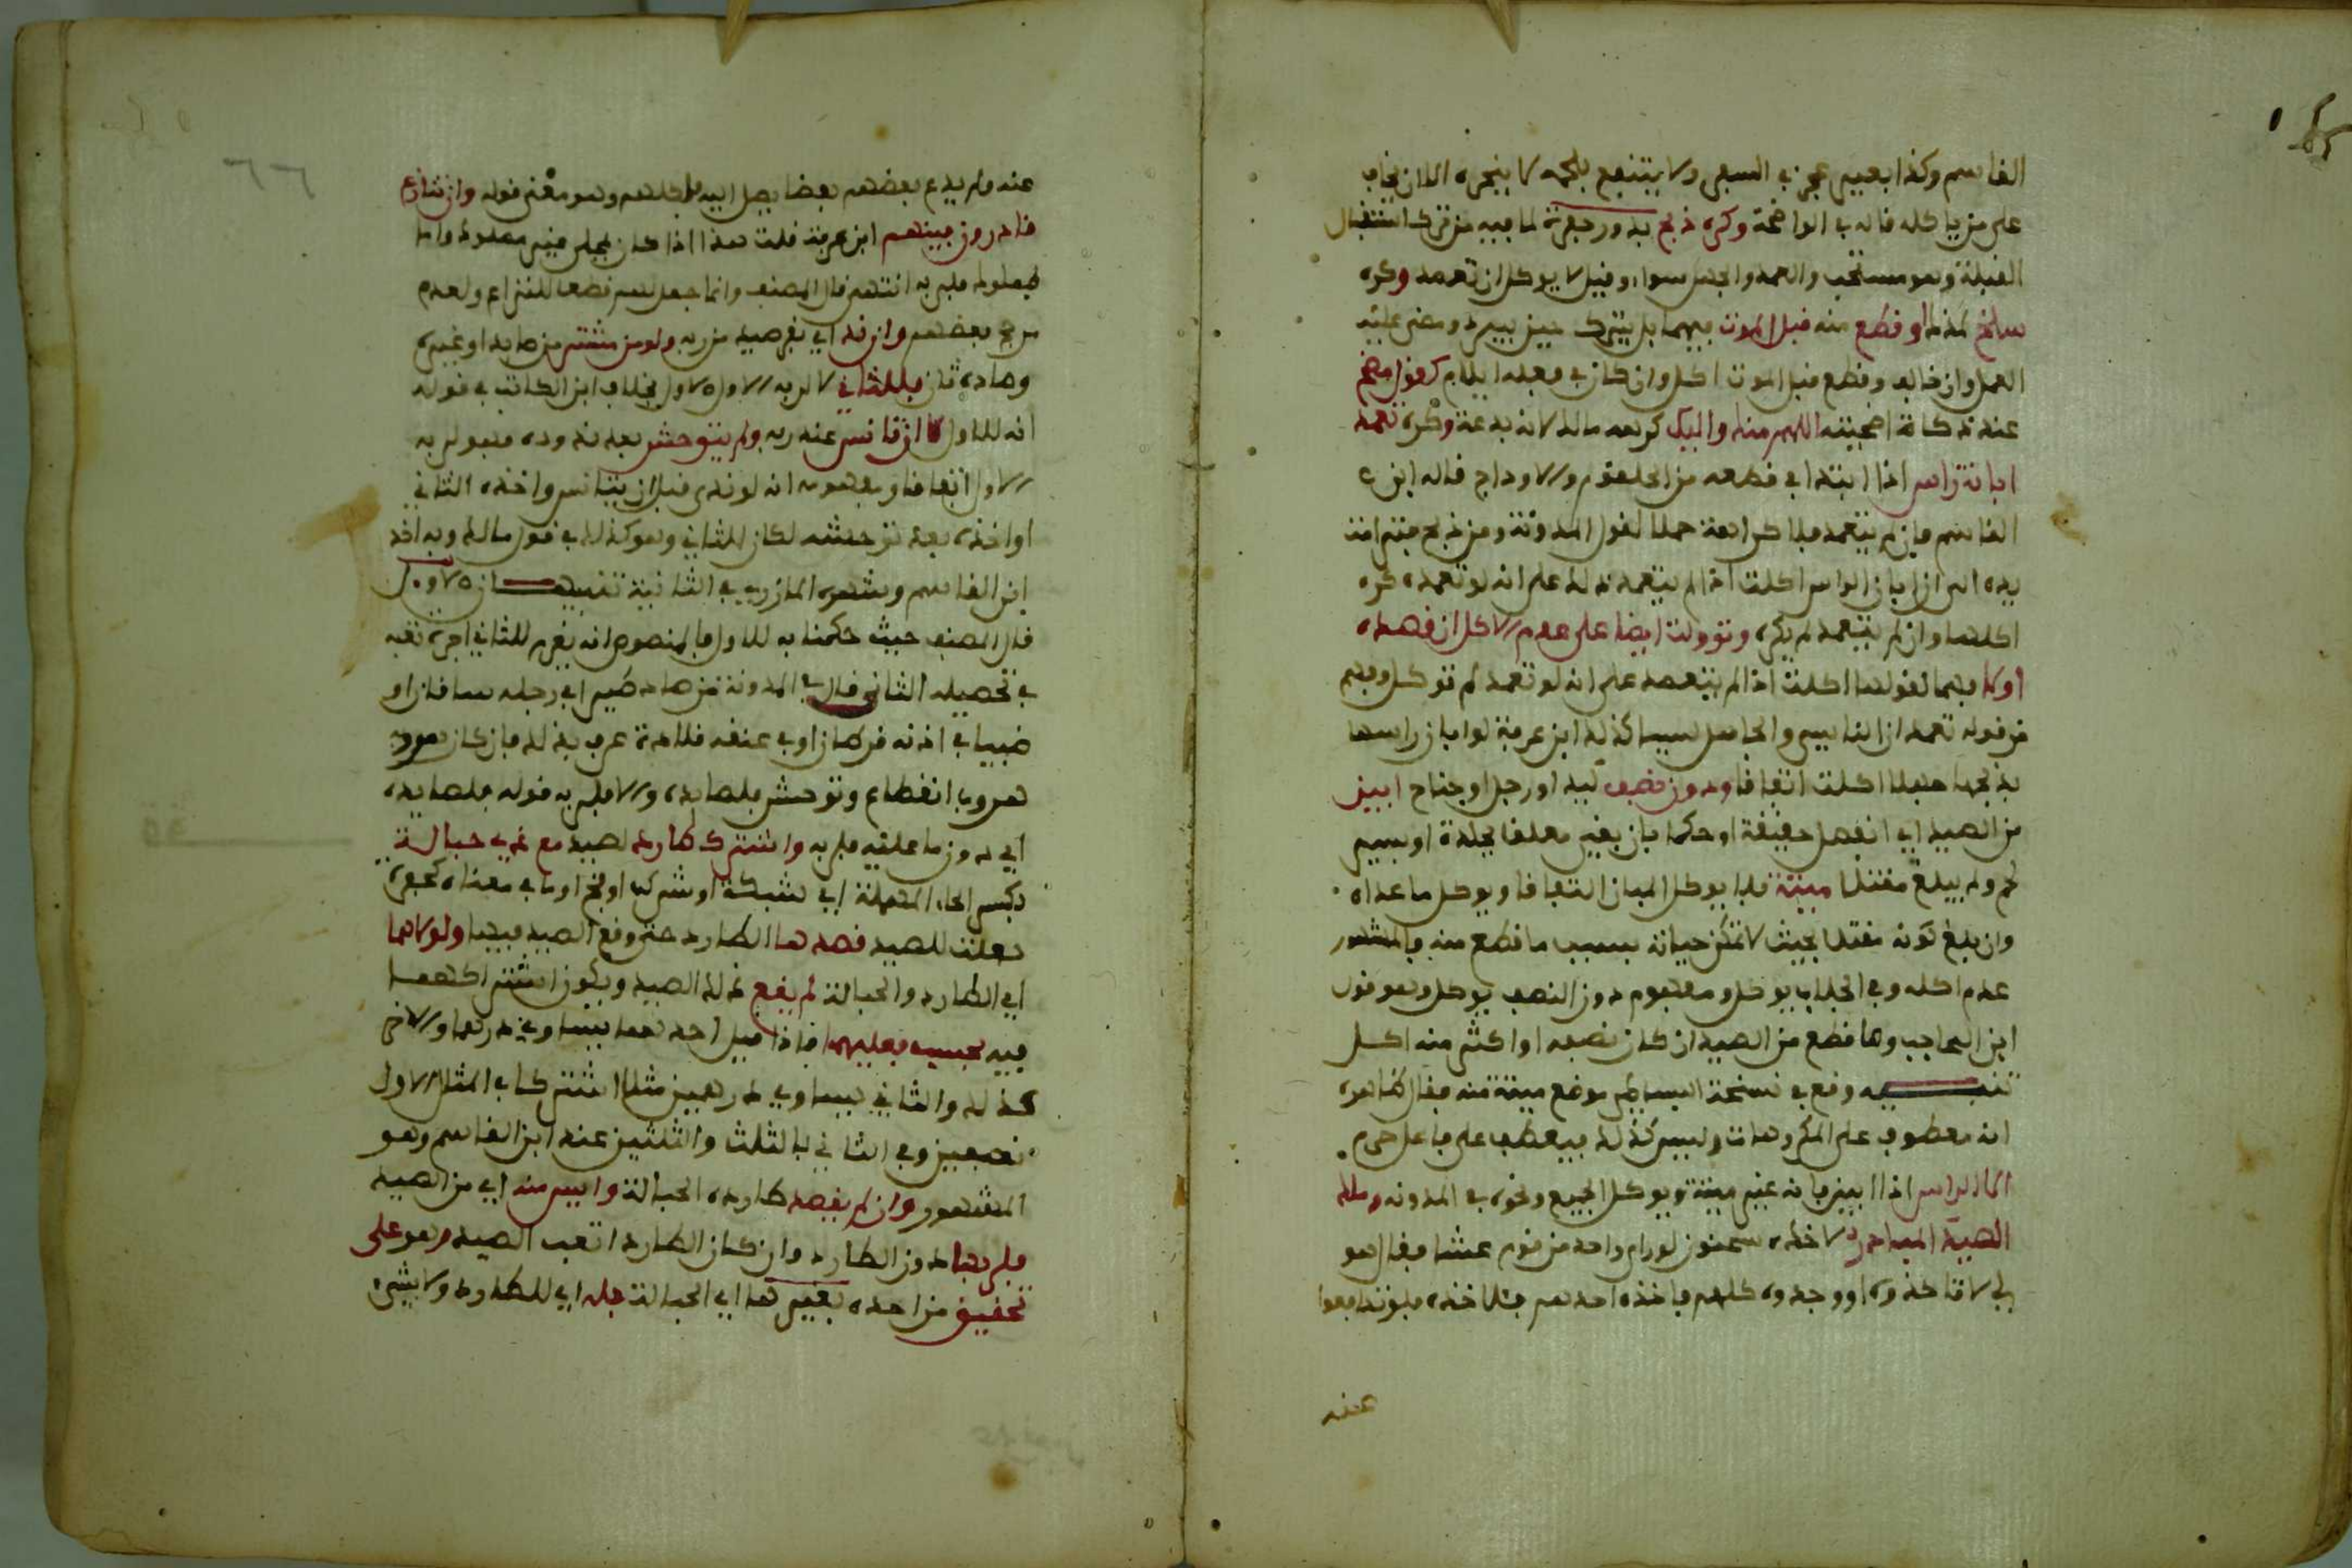 القاسم وكذا بعير عجز في السفر ولا ينتفع بلحمه لا ينحره الا ان يخاف
على من ياكله قاله في الواضحة وكره ذبح بدور حفرة لما فيه من ترك استقبال
القبلة وهو مستحب والعمد والجهل سواء وقيل لا يوكل ان تعمد وكره
سلخ لمذكا او قطع منه قبل الموت فيهما بل يترك حين يبرد ومضى عليه
العمل وان خالف وقطع قبل الموت اكل وان كان في فعله ايلام كقول مضح
عند ذكاة اضحيته اللهم منك واليك كرهه مالك لانه بدعة وكره تعمد
ابانة راس اذا ابتدا في قطعه من الحلقوم والاوداج قاله ابن
القاسم فان لم يتعمد فلا كراهة حملا لقول المدونة ومن ذبح فترامت
يده الى ان ابان الراس اكلت اذا لم يتعمد ذلك على انه لو تعمده كره
اكلها وان لم يتعمد لم يكره وتوولت ايضا على عدم الاكل ان قصده
اولا فيهما لقولها اكلت اذا لم يتعمد على انه لو تعمد لم توكل وفهم
من قوله تعمد ان الناسي والجاهل ليسا كذلك ابن عرفة لو ابان راسها
بذبحها جهلا اكلت اتفاقا ودون نصف كيد او رجل او جناح ابين
من الصيد اي انفصل حقيقة او حكما بان بقي معلقا بجلدة او يسير
لحم ولم يبلغ مقتلا ميتة فلا يوكل المبان اتفاقا ويوكل ما عداه
وان بلغ كونه مقتلا بحيث لا تمكن حياته بسبب ما قطع منه فالمشهور
عدم اكله وفي الجلاب يوكل ومفهوم دون النصف يوكل وهو قول
ابن الحاجب وما قطع من الصيد ان كان نصفه او اكثر منه اكل
تنبيه وقع في نسخة البساطي موضع ميتة منه فقال ظاهره
انه معطوف على المكروهات وليس كذلك فيعطف على فاعل حرم
الا الراس اذا ابين فانه غير ميتة ويوكل الجميع ونحوه في المدونة وملك
الصيد المبادر لاخذه سحنون لو راى واحد من قوم عشا فقال هو
لي لا تاخذوه او وجدوه كلهم فاخذه احدهم فلاخذه فلو تدافعوا
عنه
عنه ولم يدع بعضهم بعضا يصل اليه فلكلهم وهو معنى قوله وان تنازع
قادرون فبينهم ابن عرفة قلت هذا اذا كان بمحل غير مملوك واما
المملوك فلربه انتهى قال المصنف وانما جعل لهم قطعا للنزاع ولعدم
مرجح بعضهم وان ند اي نفر صيد من ربه ولو من مشتر من صايد او غيره
وصاده ثان فللثاني لا لربه الاول بخلاف ابن الكاتب في قوله
انه للاول لا ان تانس عنه ربه ولم يتوحش بعد ندوده فهو لربه
الاول اتفاقا ومفهومه انه لو ند قبل ان يتانس واخذه الثاني
او اخذه بعد توحشه لكان للثاني وهو كذلك في قول مالك وبه اخذ
ابن القاسم وشهره المازري في الثانية تنبيهان الاول
قال المصنف حيث حكمنا به للاول فالمنصوص انه يغرم للثاني اجرة تعبه
في تحصيله الثاني قال في المدونة من صاد طيرا في رجليه ساقان او
ظبيا في اذنه قرطان او في عنقه قلادة عرف بذلك فان كان هروبه
هروب انقطاع وتوحش فلصايده والا فلربه قوله فلصايده
اي دون ما عليه فلربه واشترك طارد لصيد مع ذي حبالة
بكسر الحاء المهملة اي شبكة او شرك او فخ او ما في معناه كحفرة
جعلت للصيد قصدها الطارد حتى وقع الصيد فيها ولولاهما
اي الطارد والحبالة لم يقع ذلك الصيد ويكون اشتراكهما
فيه بحسب فعليهما فاذا قيل احدهما يساوي درهما والاخر
كذلك والثاني يساوي درهمين مثلا اشتركا في المثل الاول
نصفين وفي الثاني بالثلث والثلثين عند ابن القاسم وهو
المشهور وان لم يقصد طارده الحبالة وايس منه اي من الصيد
فلربها دون الطارد وان كان الطارد اتعب الصيد وهو على
تحقيق من اخذه بغيرها اي الحبالة فله اي للطارد ولا شيء